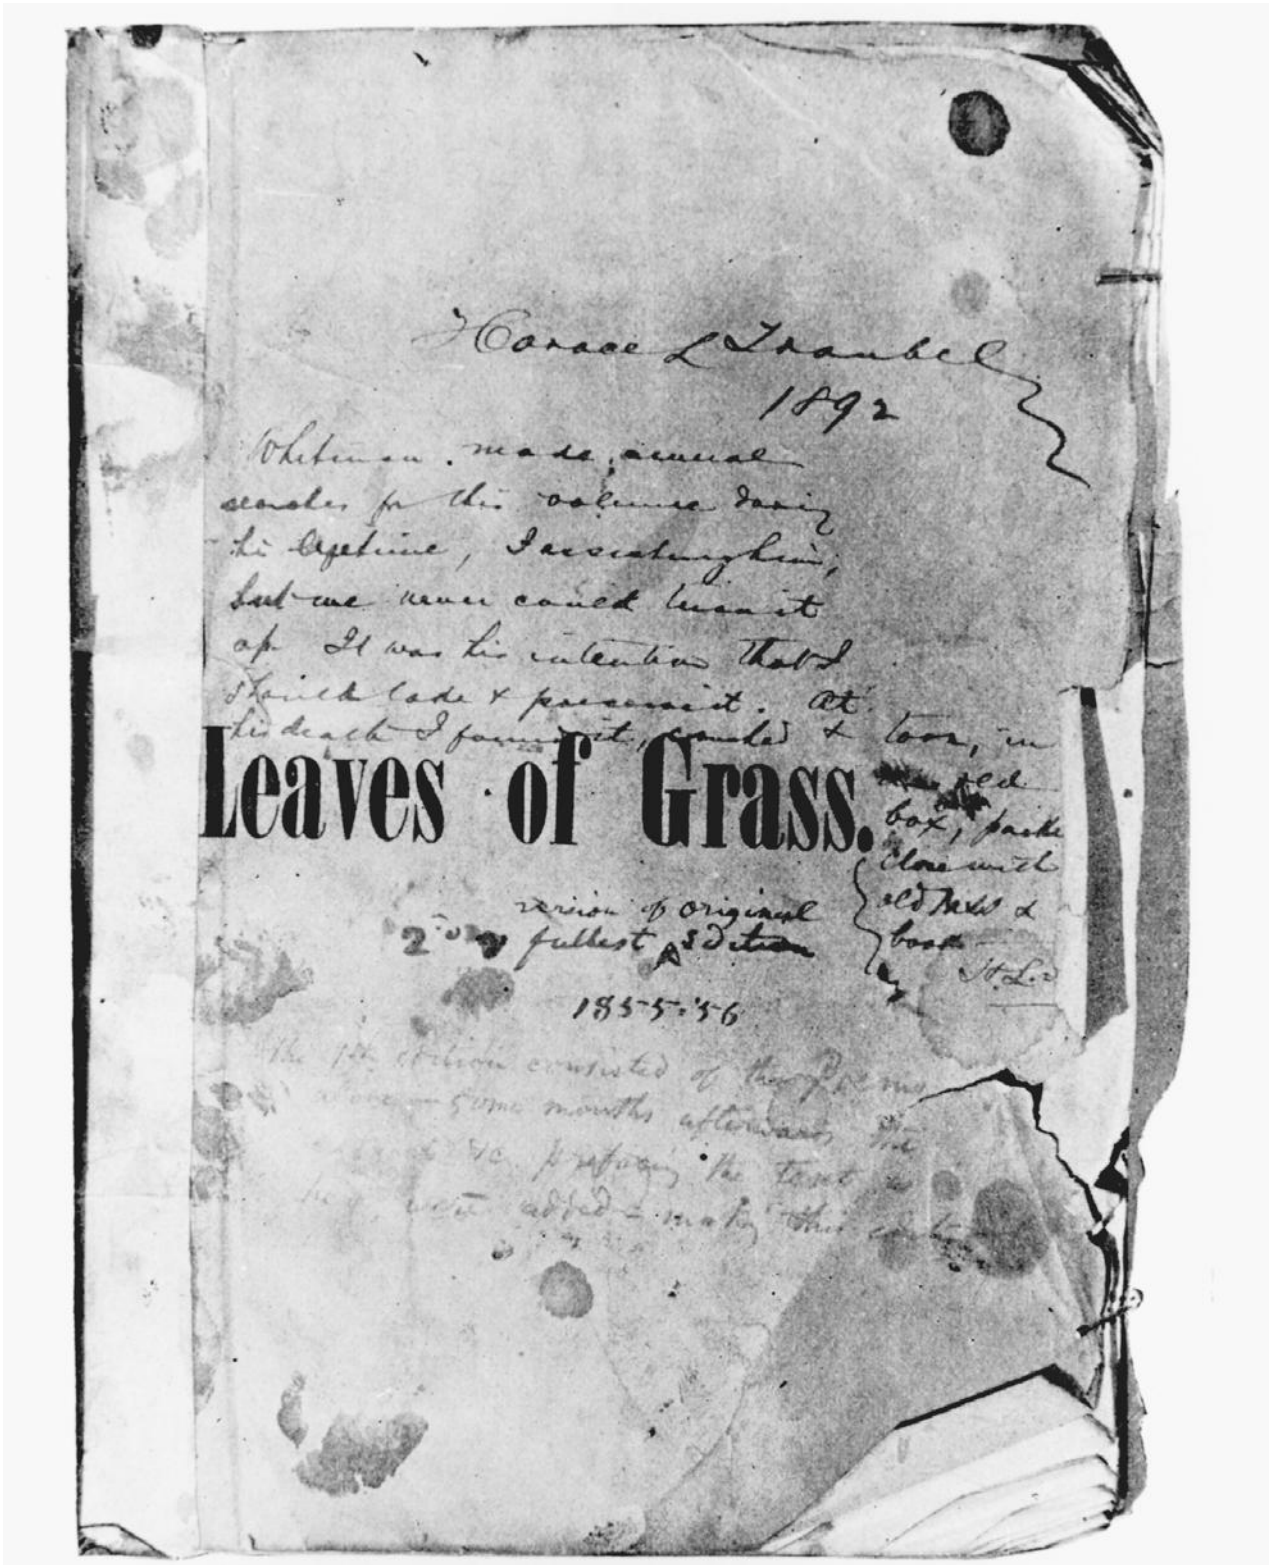 Horace L Traubel
1892
Whitman made several
searches for this volume during
his lifetime, I assisting him,
but we never could turn it
up. It was his intention that I
should take & preserve it. At
his death I found it, crushed & torn, in
old
box, packed
close with
old MSS &
books
H.L.T.
Leaves of Grass.
version of original
2d & fullest Edition
1855-'56
The 1st edition consisted of the Poems
alone — some months afterwards the
prefacing the text
were added — making this